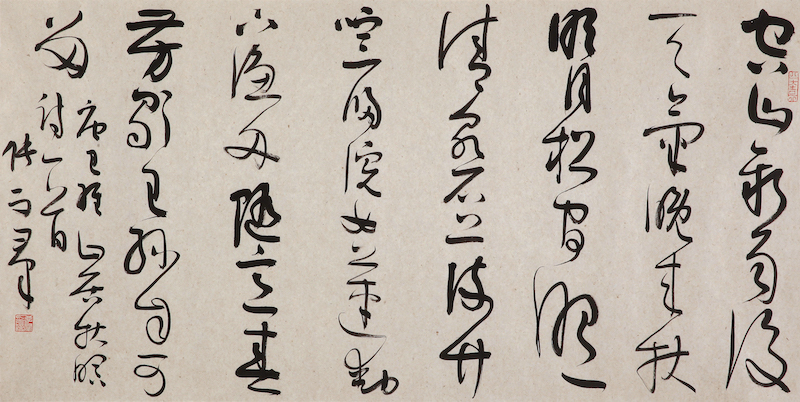 空山新雨後
天氣晚來秋
明月松間照
清泉石上流竹
喧歸浣女蓮動
下漁舟隨意春
芳歇王孫自可
留
唐王維山居秋暝
詩一首